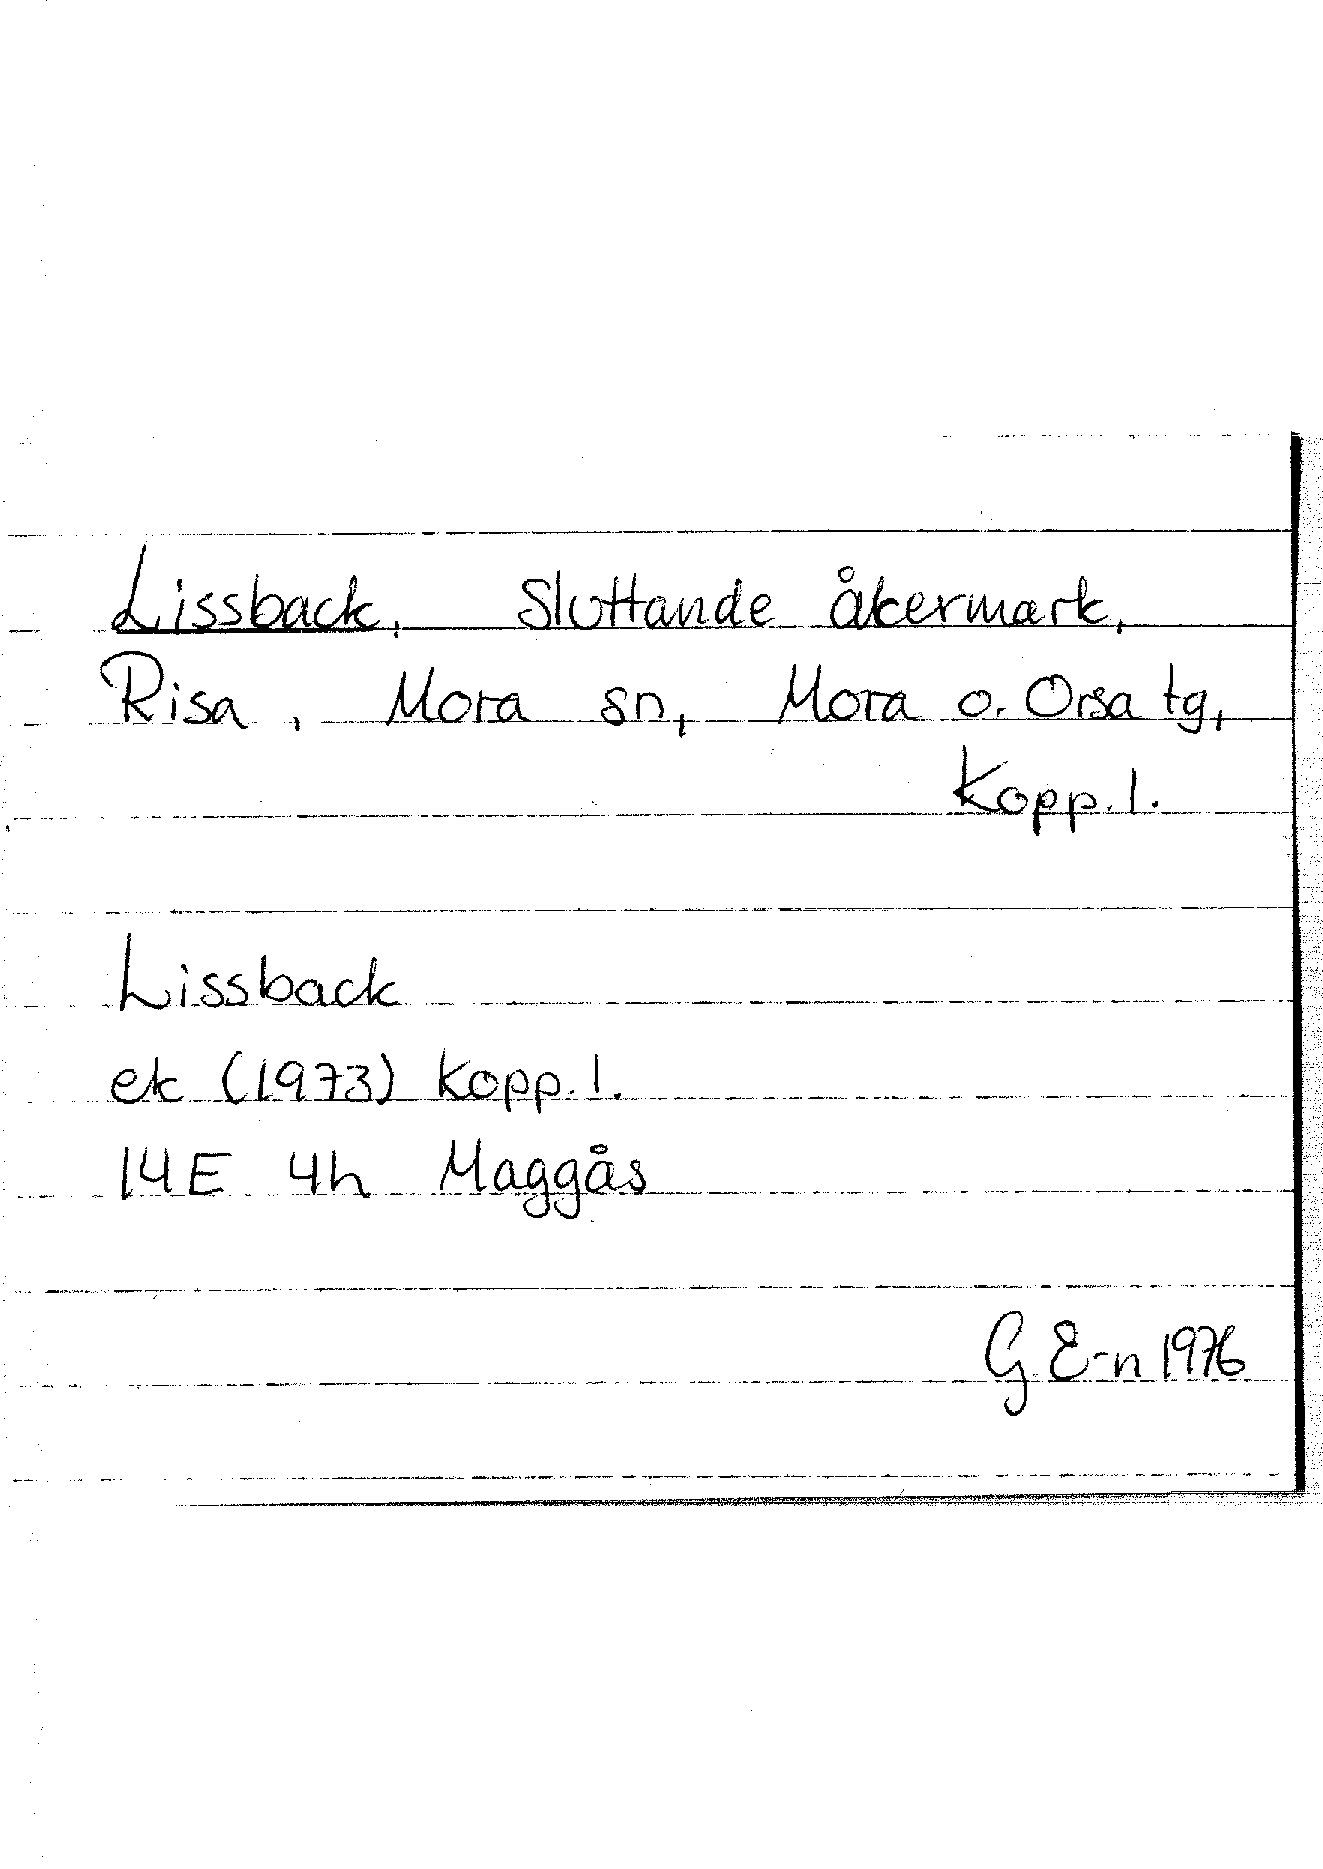 Lissback, Sluttande åkermark,
Risa, Mora sn, Mora o. Orsa tg,
Kopp. l.
Lissback
ek (1973) Kopp. l.
14E 4h Maggås
G E-n 1976